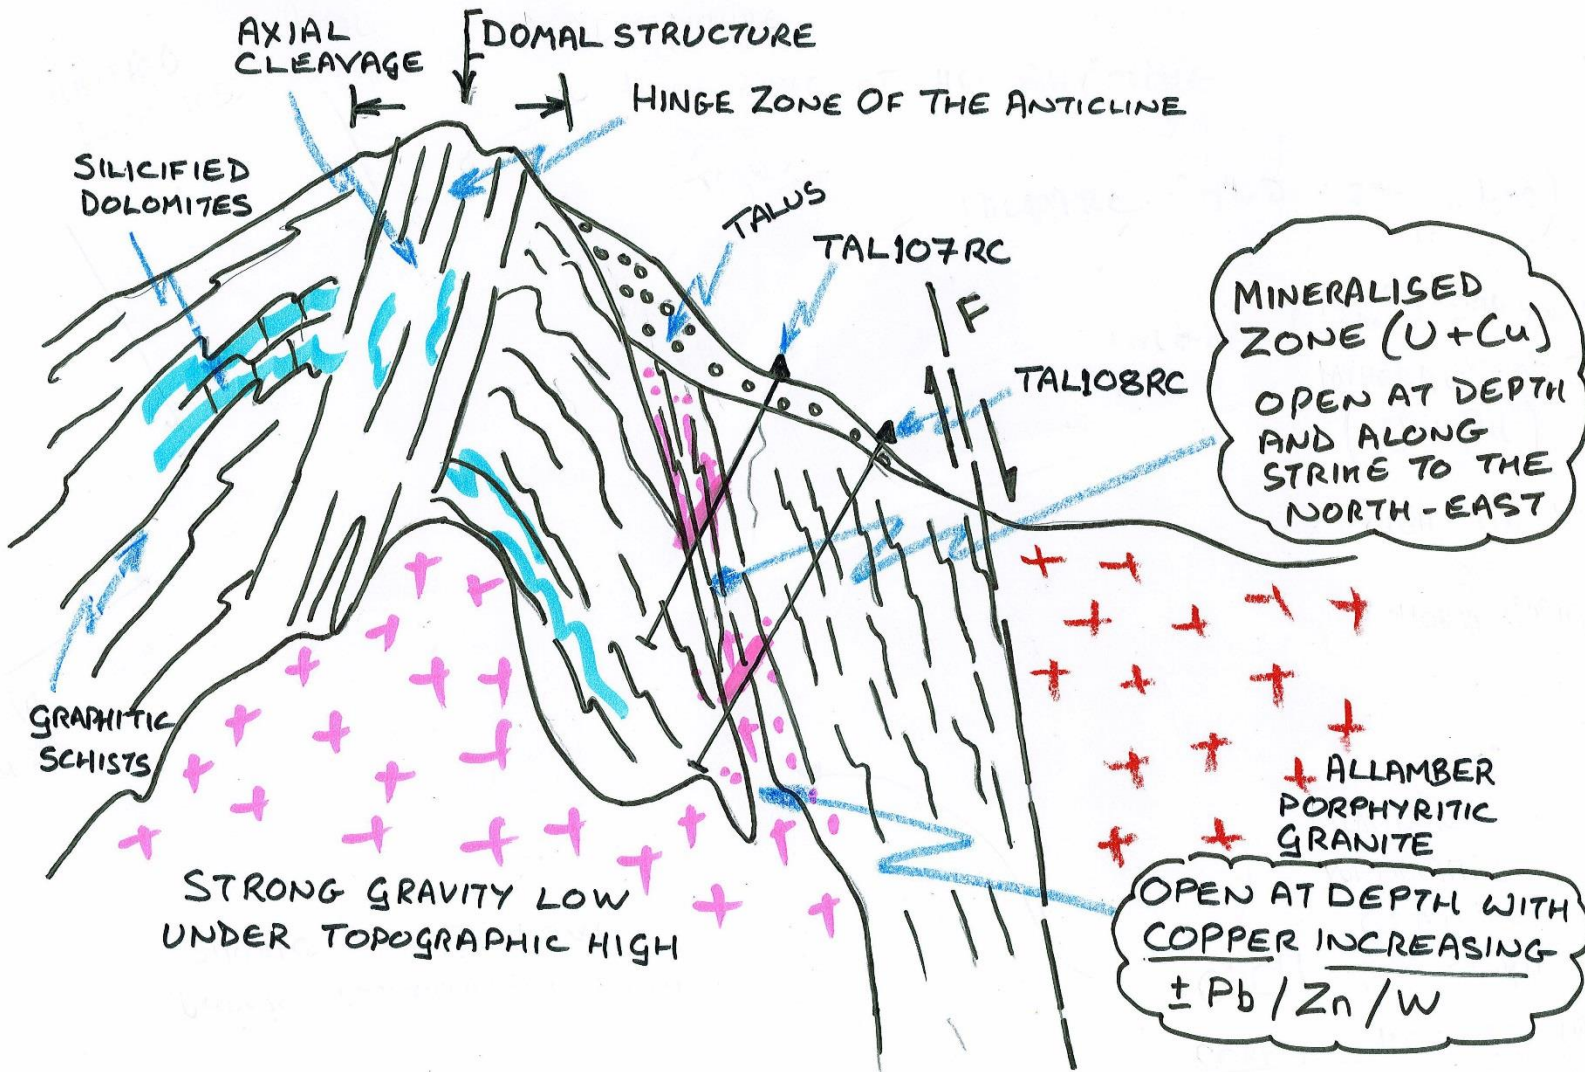 AXIAL
CLEAVAGE
DOMAL STRUCTURE
HINGE ZONE OF THE ANTICLINE
SILICIFIED
DOLOMITES
TALUS
TAL107RC
F
TAL108RC
MINERALISED
ZONE (U+Cu)
OPEN AT DEPTH
AND ALONG
STRIKE TO THE
NORTH-EAST
GRAPHITIC
SCHISTS
ALLAMBER
PORPHYRITIC
GRANITE
STRONG GRAVITY LOW
UNDER TOPOGRAPHIC HIGH
OPEN AT DEPTH WITH
COPPER INCREASING
± Pb / Zn / W